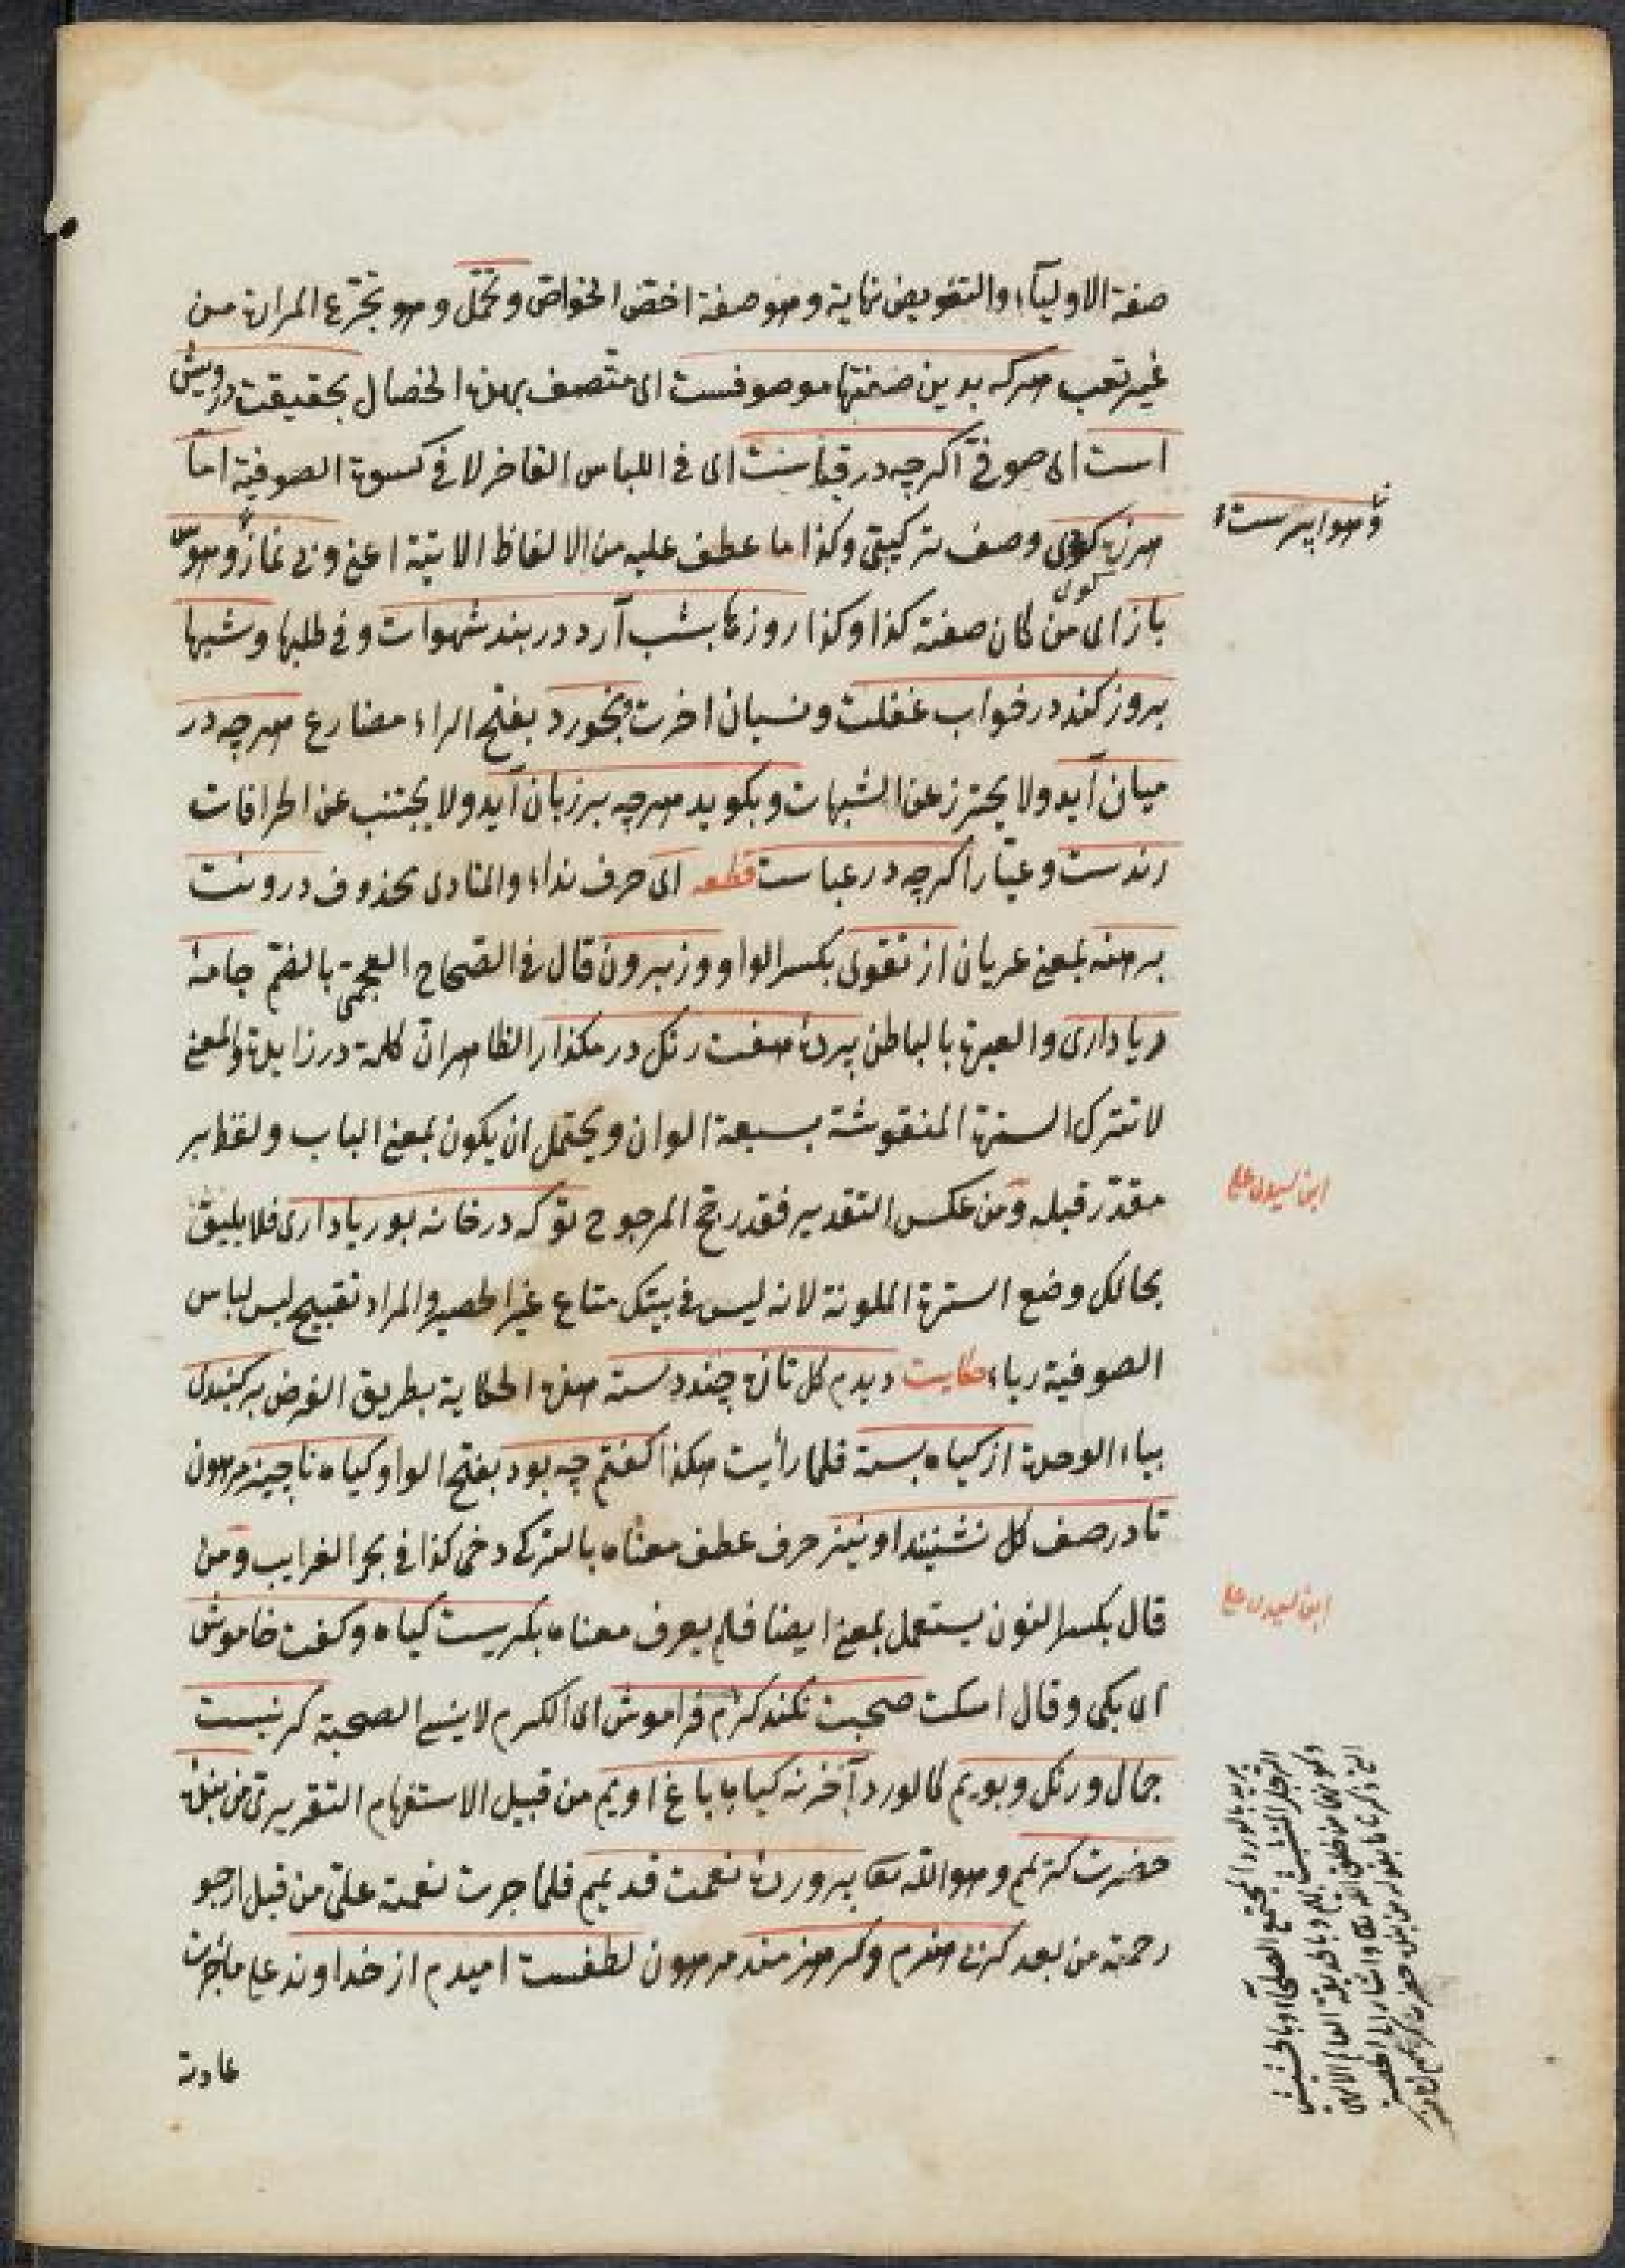 صفة الاولیآء والتفویض نهایة وهو صفة اخصّ الخواصّ وتحمّل وهو تجرّع المرارة من
غیر تعب هرکه بدین صفتها موصوفست ای متّصف بهذه الخصال بحقیقت درویش
است ای صوفی اکرچه در قباست ای فی اللباس الفاخر لا فی کسوة الصوفیة امّا
هرزه کوی وصف ترکیبی وکذا ما عطف علیه من الالفاظ الاتیة اعنی و بی نماز و هوس
وهواپرست
باز ای من کان صفته کذا وکذا روزها بشب آرد در بند شهوات و فی طلبها و شبها
بروز کند در خواب غفلت ونسیان اخرت بخورد بفتح الراء مضارع هرچه در
میان آید ولا یحترز عن الشبهات وبکوید هرچه بر زبان آید ولا یجتنب عن الخرافات
رندست وعیّار اکرچه در عباست قطعه ای حرف نداء والمنادی محذوف درونت
برهنه بمعنی عریان از تقوی بکسر الواو وز برون قال فی الصحاح العجمی بالضم جامهٔ
ریا داری والعبرة بالباطن پردهٔ هفت رنک در مکذار الظاهر ان کلمة در زایدة والمعنی
لا تترک الستره المنقوشة بسبعة الوان ویحتمل ان یکون بمعنی الباب ولفظ بر
مقدّر قبله ومن عکس التقدیر فقد رجّح المرجوح توکه در خانه بوریا داری فلا یلیق
ابن سیدی علی
بحالک وضع الستره الملونة لانه لیس فی بیتک متاع غیر الحصیر والمراد تقبیح لبس لباس
الصوفیة ریاء حکایت دیدم کل تازه چند دسته هذه الحکایة بطریق الفرض بر کنبدی
بیاء الوحدة از کیاه بسته فلما رأیت هکذا کفتم چه بود بفتح الواو کیاه ناچیز مرهون
تا در صف کل نشیند او نیز حرف عطف معناه بالترکی دخی کذا فی بحر الغرایب ومن
قال بکسر النون یستعمل بمعنی ایضا فلم یعرف معناه بکریست کیاه وکفت خاموش
ابن سیدی علی
ای بکی وقال اسکت صحبت نکند کرم فراموش ای الکرم لا ینسی الصحبة کر نیست
جمال ورنک وبویم کالورد آخر نه کیاه باغ اویم من قبیل الاستفهام التقریری من بندهٔ
حضرت کریم وهو الله تعا پروردهٔ نعمت قدیم فلما جرت نعمته علیّ من قبل ارجو
رحمته من بعد کر بی هنرم وکر هنرمند مرهون لطفست امیدم از خداوند علی ما جرت
عادته